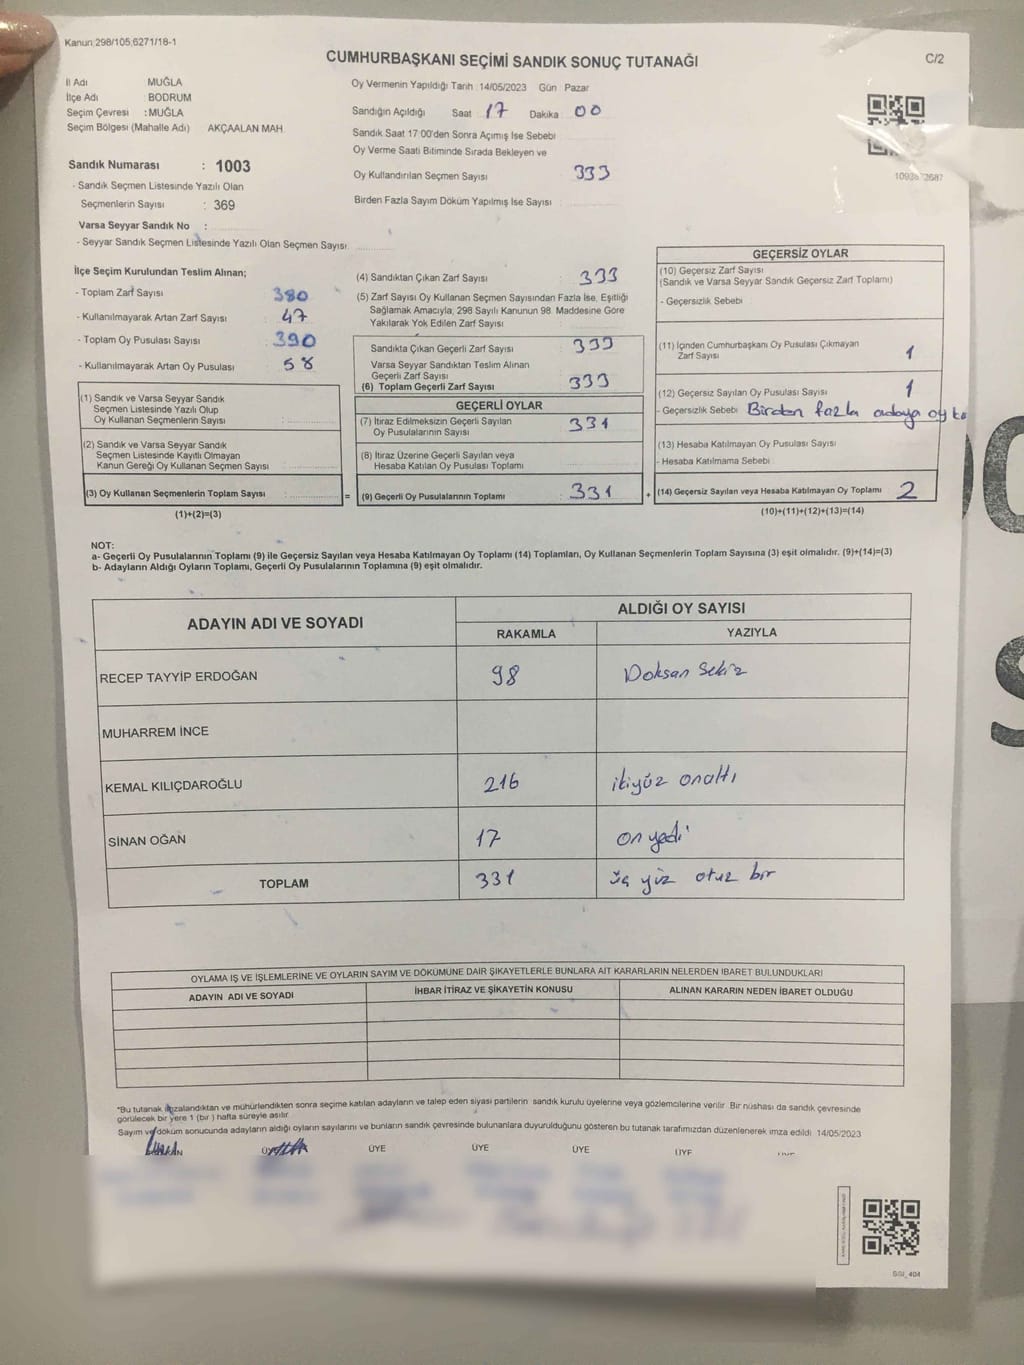 Kanun:298/105,6271/18-1
CUMHURBAŞKANI SEÇİMİ SANDIK SONUÇ TUTANAĞI
C/2
İl Adı MUĞLA
İlçe Adı BODRUM
Seçim Çevresi :MUĞLA
Seçim Bölgesi (Mahalle Adı) AKÇAALAN MAH.
Sandık Numarası : 1003
- Sandık Seçmen Listesinde Yazılı Olan
Seçmenlerin Sayısı : 369
Varsa Seyyar Sandık No :
- Seyyar Sandık Seçmen Listesinde Yazılı Olan Seçmen Sayısı:
Oy Vermenin Yapıldığı Tarih :14/05/2023 Gün Pazar
Sandığın Açıldığı Saat 17 Dakika : 00
Sandık Saat 17:00'den Sonra Açımış İse Sebebi
Oy Verme Saati Bitiminde Sırada Bekleyen ve
Oy Kullandırılan Seçmen Sayısı 333
Birden Fazla Sayım Döküm Yapılmış İse Sayısı
İlçe Seçim Kurulundan Teslim Alınan;
- Toplam Zarf Sayısı 380
- Kullanılmayarak Artan Zarf Sayısı : 47
- Toplam Oy Pusulası Sayısı : 390
- Kullanılmayarak Artan Oy Pusulası 58
(1) Sandık ve Varsa Seyyar Sandık
Seçmen Listesinde Yazılı Olup
Oy Kullanan Seçmenlerin Sayısı :
(2) Sandık ve Varsa Seyyar Sandık
Seçmen Listesinde Kayıtlı Olmayan
Kanun Gereği Oy Kullanan Seçmen Sayısı
(3) Oy Kullanan Seçmenlerin Toplam Sayısı : =
(1)+(2)=(3)
(4) Sandıktan Çıkan Zarf Sayısı : 333
(5) Zarf Sayısı Oy Kullanan Seçmen Sayısından Fazla İse, Eşitliği
Sağlamak Amacıyla, 298 Sayılı Kanunun 98. Maddesine Göre
Yakılarak Yok Edilen Zarf Sayısı
Sandıkta Çıkan Geçerli Zarf Sayısı 333
Varsa Seyyar Sandıktan Teslim Alınan
Geçerli Zarf Sayısı
(6) Toplam Geçerli Zarf Sayısı 333
GEÇERLİ OYLAR
(7) İtiraz Edilmeksizin Geçerli Sayılan
Oy Pusulalarının Sayısı 331
(8) İtiraz Üzerine Geçerli Sayılan veya
Hesaba Katılan Oy Pusulası Toplamı
(9) Geçerli Oy Pusulalarının Toplamı : 331 +
GEÇERSİZ OYLAR
(10) Geçersiz Zarf Sayısı
(Sandık ve Varsa Seyyar Sandık Geçersiz Zarf Toplamı)
- Geçersizlik Sebebi
(11) İçinden Cumhurbaşkanı Oy Pusulası Çıkmayan
Zarf Sayısı 1
(12) Geçersiz Sayılan Oy Pusulası Sayısı 1
- Geçersizlik Sebebi Birden fazla adaya oy
(13) Hesaba Katılmayan Oy Pusulası Sayısı
- Hesaba Katılmama Sebebi
(14) Geçersiz Sayılan veya Hesaba Katılmayan Oy Toplamı 2
(10)+(11)+(12)+(13)=(14)
NOT:
a- Geçerli Oy Pusulalarının Toplamı (9) ile Geçersiz Sayılan veya Hesaba Katılmayan Oy Toplamı (14) Toplamları, Oy Kullanan Seçmenlerin Toplam Sayısına (3) eşit olmalıdır. (9)+(14)=(3)
b- Adayların Aldığı Oyların Toplamı, Geçerli Oy Pusulalarının Toplamına (9) eşit olmalıdır.
ADAYIN ADI VE SOYADI ALDIĞI OY SAYISI
RAKAMLA YAZIYLA
RECEP TAYYİP ERDOĞAN 98 Doksan Sekiz
MUHARREM İNCE
KEMAL KILIÇDAROĞLU 216 ikiyüz onaltı
SİNAN OĞAN 17 on yedi
TOPLAM 331 üç yüz otuz bir
OYLAMA İŞ VE İŞLEMLERİNE VE OYLARIN SAYIM VE DÖKÜMÜNE DAİR ŞİKAYETLERLE BUNLARA AİT KARARLARIN NELERDEN İBARET BULUNDUKLARI
ADAYIN ADI VE SOYADI İHBAR İTİRAZ VE ŞİKAYETİN KONUSU ALINAN KARARIN NEDEN İBARET OLDUĞU
*Bu tutanak imzalandıktan ve mühürlendikten sonra seçime katılan adayların ve talep eden siyasi partilerin sandık kurulu üyelerine veya gözlemcilerine verilir. Bir nüshası da sandık çevresinde
görülecek bir yere 1 (bir ) hafta süreyle asılır.
Sayım ve döküm sonucunda adayların aldığı oyların sayılarını ve bunların sandık çevresinde bulunanlara duyurulduğunu gösteren bu tutanak tarafımızdan düzenlenerek imza edildi. 14/05/2023
ÜYE ÜYE ÜYE ÜYE
SSI_404